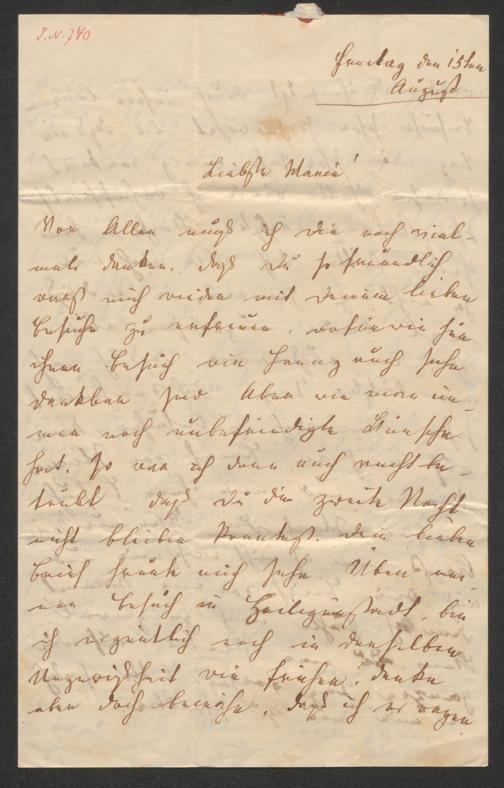 J. N. 740
Freitag den 15ten
August
Liebste Marie!
Vor Allen muß ich dir noch viel-
mals danken, daß du so freundlich
warst mich wieder mit deinem lieben
Besuche zu erfreuen, wofür wir für
ihren Besuch wie Franz auch sehr
dankbar sind. Aber wie man im-
mer noch unbefriedigte Wünsche
hat, so war ich denn auch recht be-
trübt, daß du die zweite Nacht
nicht bleiben konntest. Dein lieber
Brief freute mich sehr. Über mei-
nen Besuch in Heiligenstadt, bin
ich eigentlich noch in derselben
Ungewißheit wie früher, denke
aber doch beinahe, daß ich es wagen